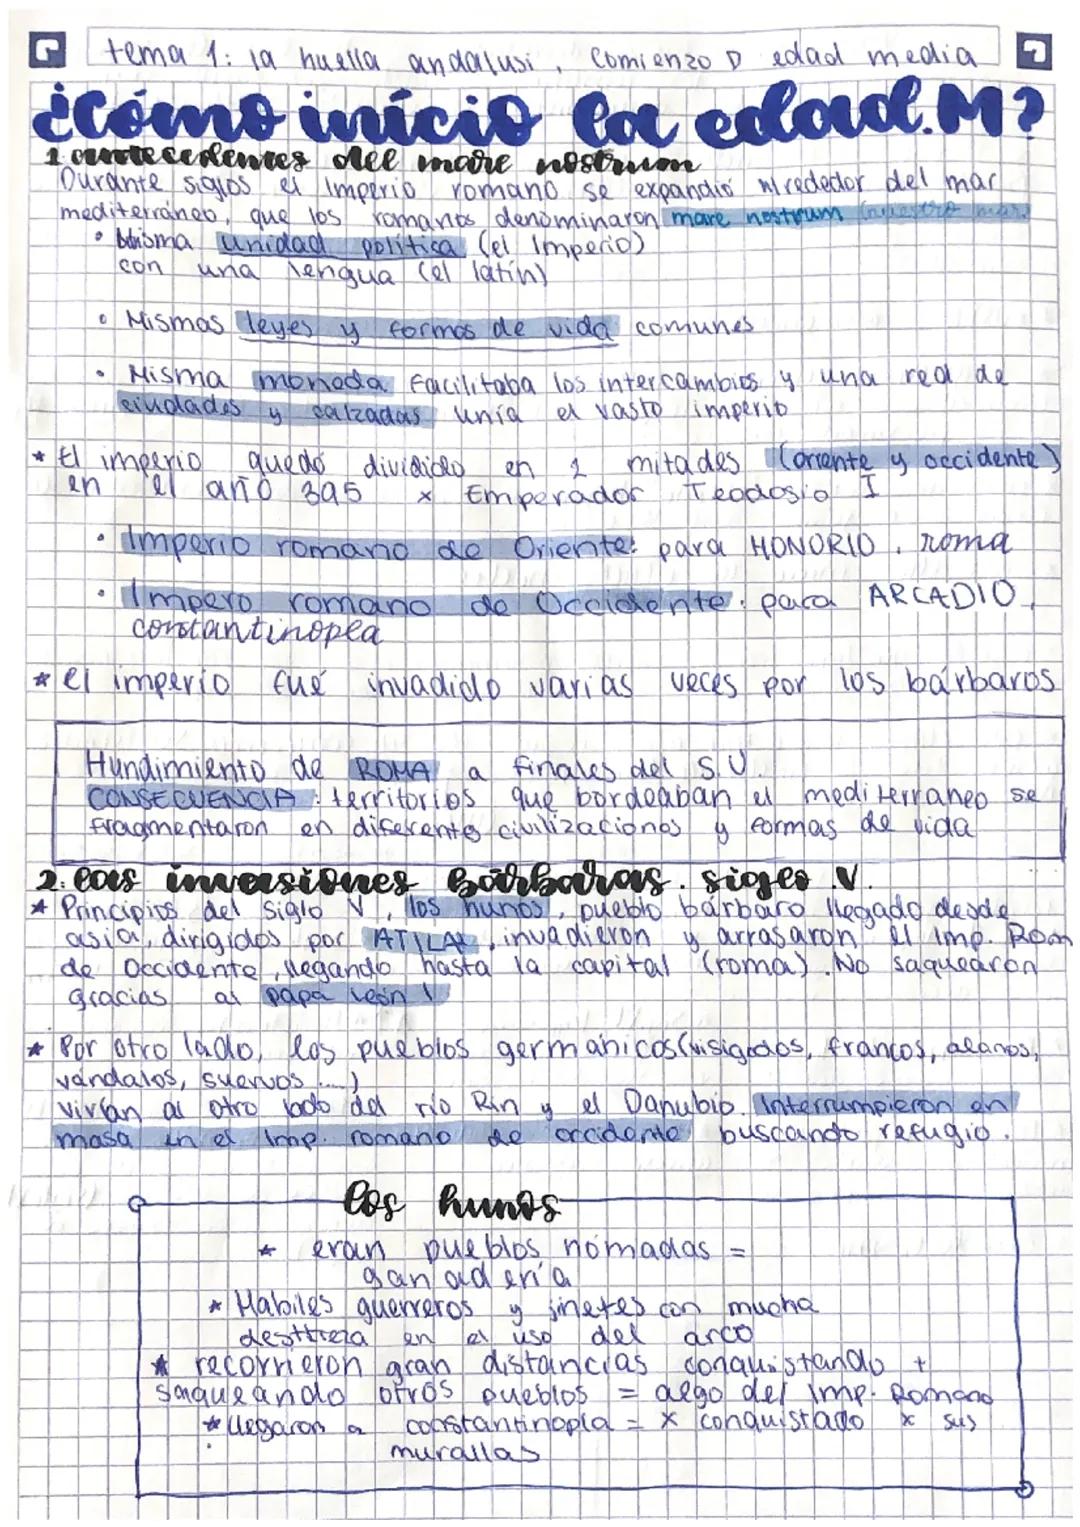 tema 1: la huella andalusi, Comienzo D edad media
¿Cómo início la edad.M?
1. antecedentes del mare nostrum
Durante siglos el Imperio romano se expandió alrededor del mar
mediterráneo, que los romanos denominaron mare nostrum (nuestro mar)
• Misma unidad política (el Imperio)
con una lengua (el latín)
• Mismas leyes y formas de vida comunes
• Misma moneda facilitaba los intercambios y una red de
ciudades y calzadas unía el vasto imperio
* El imperio quedó dividido en 2 mitades (oriente y occidente)
en el año 395 x Emperador Teodosio I
• Imperio romano de Oriente: para HONORIO, roma
• Impero romano de Occidente: para ARCADIO,
constantinopla
* el imperio fué invadido varias veces por los bárbaros
Hundimiento de ROMA a finales del S.V.
CONSECUENCIA: territorios que bordeaban el mediterraneo se
fragmentaron en diferentes civilizaciones y formas de vida
2. las invasiones bárbaras. siglo V.
* Principios del siglo V, los hunos, pueblo bárbaro llegado desde
asia, dirigidos por ATILA, invadieron y arrasaron el Imp. Rom
de Occidente, llegando hasta la capital (roma). No saquearon
gracias al papa león I
* Por otro lado, los pueblos germanicos (visigodos, francos, alanos,
vándalos, suevos ...)
vivían al otro lado del río Rin y el Danubio. Interrumpieron en
masa en el Imp. romano de occidente buscando refugio.
los hunos
* eran pueblos nómadas =
ganadería
* Habiles guerreros y jinetes con mucha
destreza en el uso del arco
* recorrieron gran distancias conquistando +
saqueando otros pueblos = algo del Imp. Romano
* llegaron a constantinopla = x conquistado x sus
murallas